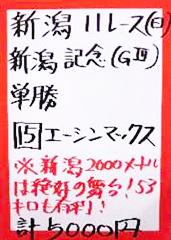 新潟11レース(日)
新潟記念(GⅢ)
単勝
15 エーシンマックス
※新潟2000メートル
は絶好の舞台!53
キロも有利!
計5000円